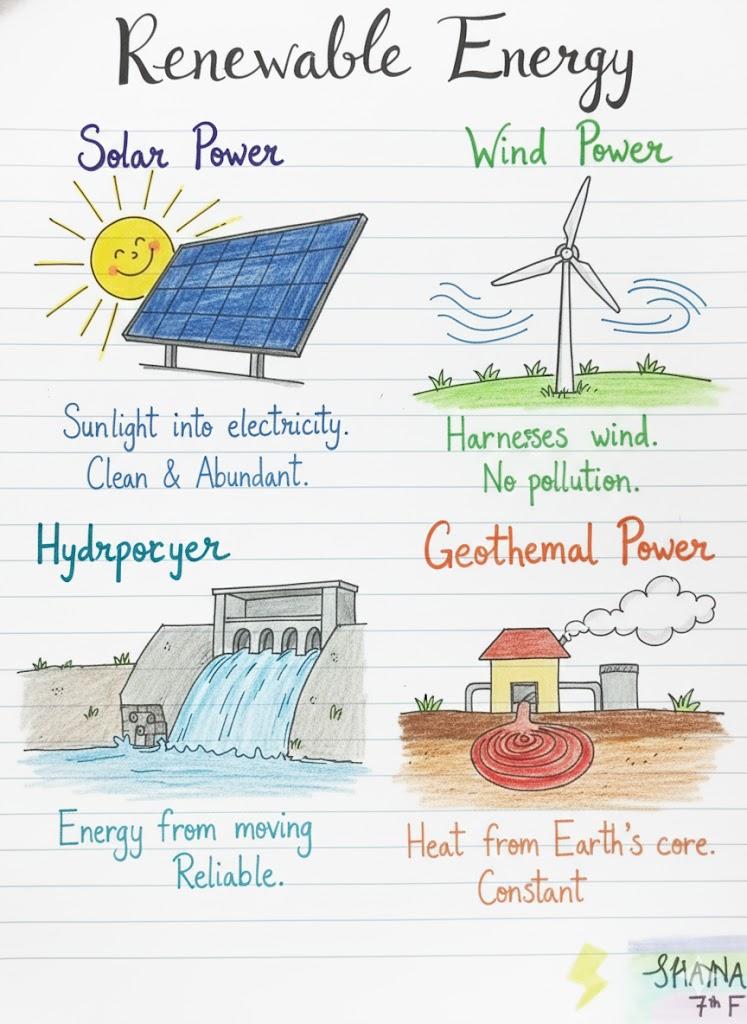 Renewable Energy
Solar Power
Sunlight into electricity.
Clean & Abundant.
Wind Power
Harnesses wind.
No pollution.
Hydrpocyer
Energy from moving
Reliable.
Geothemal Power
Heat from Earth's core.
Constant
SHAYNA
7th F